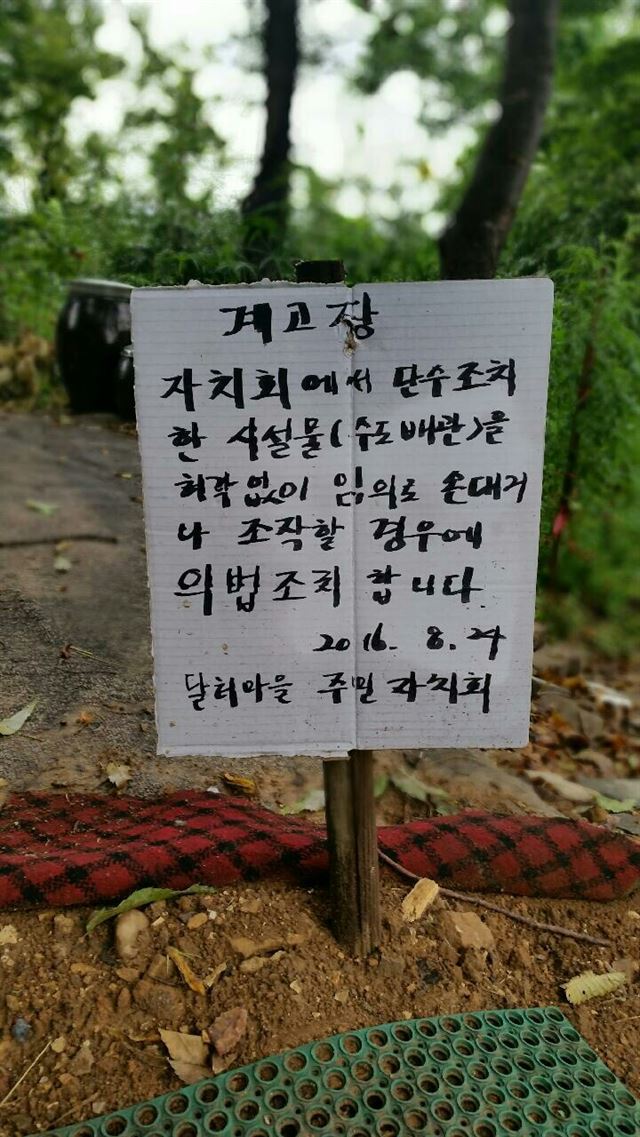 계고장
자치회에서 단수조치
한 시설물(수도배관)을
허락없이 임의로 손대거
나 조작할 경우에
의법조치 합니다.
2016. 8. 24
달터마을 주민자치회